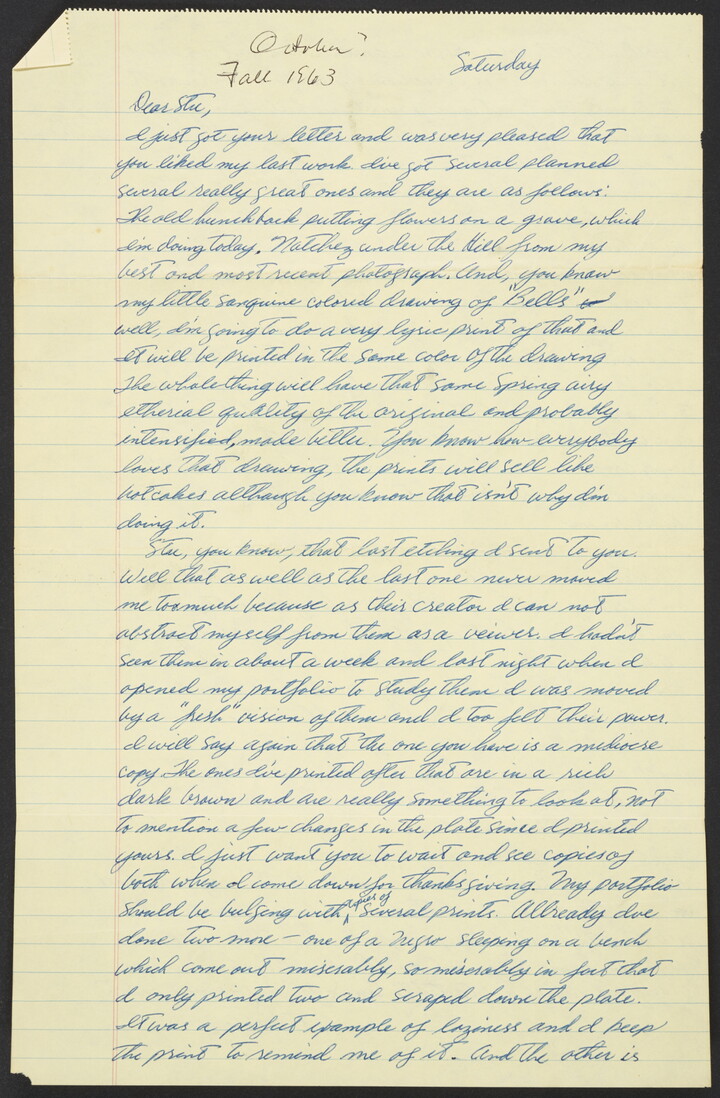 October?
Fall 1963
Saturday
Dear Stu,
I just got your letter and was very pleased that
you liked my last work. I've got several planned
several really great ones and they are as follows:
The old hunchback putting flowers on a grave, which
I'm doing today. Natchez under the Hill from my
best and most recent photograph. And, you know
my little sanguine colored drawing of "Bells"
well, I'm going to do a very lyric print of that and
It will be printed in the same color of the drawing
The whole thing will have that same Spring airy
etherial quality of the original and probably
intensified, made better. You know how everybody
loves that drawing, the prints will sell like
hotcakes although you know that isn't why I'm
doing it.
Stu, you know, that last etching I sent to you.
Well that as well as the last one never moved
me too much because as their creator I can not
abstract myself from them as a veiwer. I hadn't
seen them in about a week and last night when I
opened my portfolio to study them I was moved
by a "fresh" vision of them and I too felt their power.
I will say again that the one you have is a mediocre
copy. The ones I've printed after that are in a rich
dark brown and are really something to look at, not
to mention a few changes in the plate since I printed
yours. I just want you to wait and see copies of
both when I come down for thanksgiving. My portfolio
should be bulging with copies of several prints. Allready I've
done two more - one of a Negro sleeping on a bench
which come out miserably, so miserably in fact that
I only printed two and scraped down the plate.
It was a perfect example of laziness and I keep
the print to remind me of it. And the other is